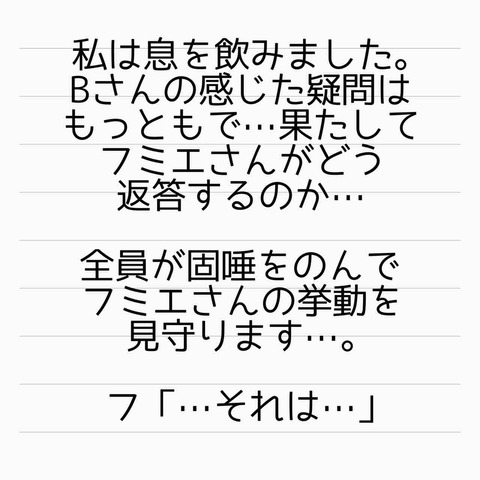 私は息を飲みました。
Bさんの感じた疑問は
もっともで…果たして
フミエさんがどう
返答するのか…
全員が固唾をのんで
フミエさんの挙動を
見守ります…。
フ「…それは…」